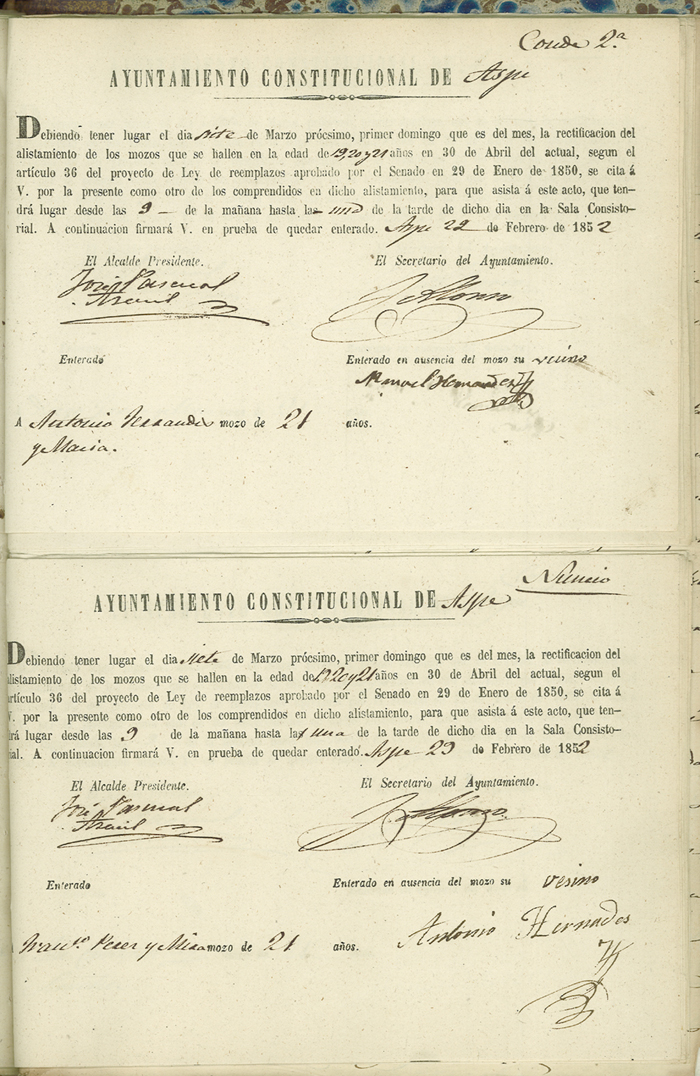 Conde 2.a
AYUNTAMIENTO CONSTITUCIONAL DE Aspe
Debiendo tener lugar el dia siete de Marzo prócsimo, primer domingo que es del mes, la rectificacion del
alistamiento de los mozos que se hallen en la edad de 19, 20 y 21 años en 30 de Abril del actual, segun el
artículo 36 del proyecto de Ley de reemplazos aprobado por el Senado en 29 de Enero de 1850, se cita á
V. por la presente como otro de los comprendidos en dicho alistamiento, para que asista á este acto, que ten-
drá lugar desde las 9 de la mañana hasta la una de la tarde de dicho dia en la Sala Consisto-
rial. A continuacion firmará V. en prueba de quedar enterado. Aspe 22 de Febrero de 1852
El Alcalde Presidente. El Secretario del Ayuntamiento.
José Pascual J. Alonso
Enterado Enterado en ausencia del mozo su vecino
Manuel Hernandez
A Antonio mozo de 21 años.
y Maria.
Nuncio
AYUNTAMIENTO CONSTITUCIONAL DE Aspe
Debiendo tener lugar el dia siete de Marzo prócsimo, primer domingo que es del mes, la rectificacion del
alistamiento de los mozos que se hallen en la edad de 19 20 y 21 años en 30 de Abril del actual, segun el
artículo 36 del proyecto de Ley de reemplazos aprobado por el Senado en 29 de Enero de 1850, se cita á
V. por la presente como otro de los comprendidos en dicho alistamiento, para que asista á este acto, que ten-
drá lugar desde las 9 de la mañana hasta la una de la tarde de dicho dia en la Sala Consisto-
rial. A continuacion firmará V. en prueba de quedar enterado. Aspe 23 de Febrero de 1852
El Alcalde Presidente. El Secretario del Ayuntamiento.
José Pascual J. Alonso
Enterado Enterado en ausencia del mozo su vesino
Antonio Hernades
Franco. Perez y Mira mozo de 21 años.